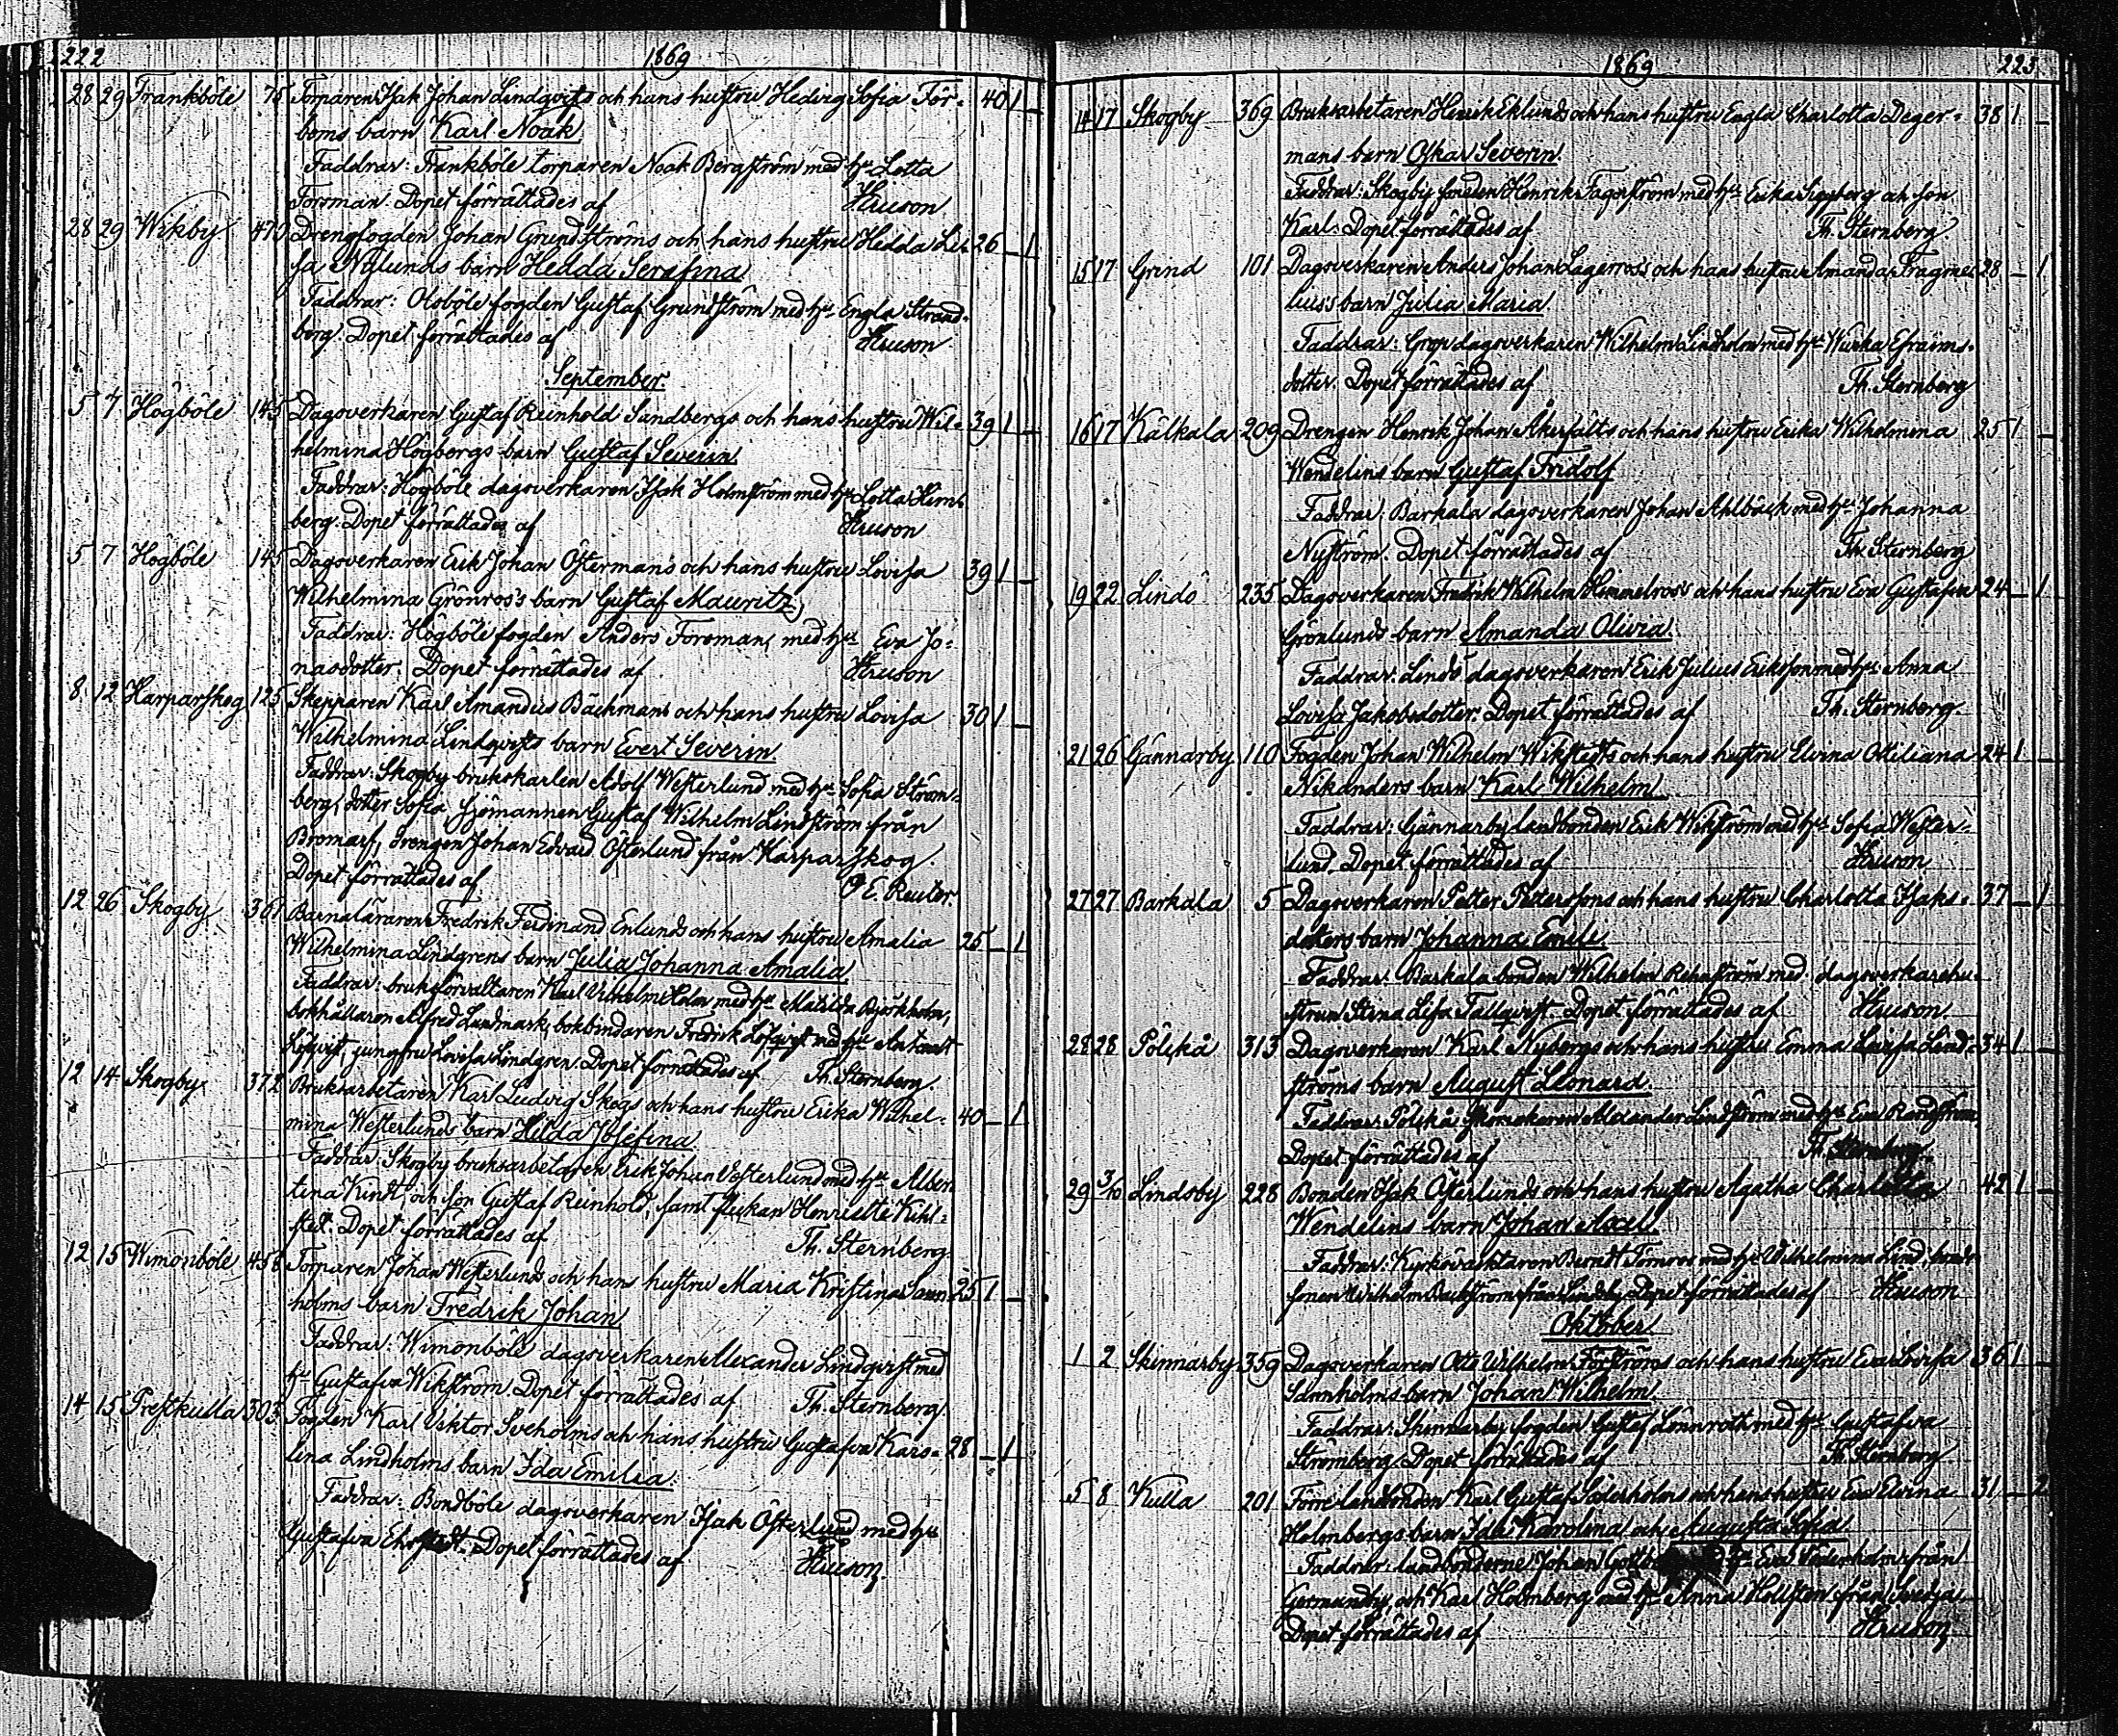 222 1869
28 29 Frankböle 75 Torparen Isak Johan Lindqvists och hans hustru Hedvig Sofia För- 40 1 —
boms barn Karl Noak
Faddrar: Frankböle torparen Noak Bergström med hu Lotta
Forsman. Dopet förrättades af
28 29 Wikby 470 Drengfogden Johan Grundströms och hans hustru Hedda Li- 26 — 1
sa Nylunds barn Hedda Serafina
Faddrar: Olsböle fogden Gustaf Grundström med hu Engla Strand-
berg. Dopet förrättades af
September.
5 7 Högböle 145 Dagsverkaren Gustaf Reinhold Sandbergs och hans hustru Wil- 39 1 —
helmina Högbergs barn Gustaf Severin
Faddrar: Högböle dagsverkaren Isak Holmström med hu Lotta
berg. Dopet förrättades af
5 7 Högböle 145 Dagsverkaren Erik Johan Östermans och hans hustru Lovisa 39 1 —
Wilhelmina Grönros's barn Gustaf Mauritz
Faddrar: Högböle fogden Anders Forsman, med hu Eva Jo-
nasdotter. Dopet förrättades af
8 12 Harparskog 125 Skepparen Karl Amandus Bäckmans och hans hustru Lovisa 30 1 —
Wilhelmina Lindqvists barn Evert Severin.
Faddrar: Skogby brukskarlen Adolf Westerlund med hu Sofia Ström-
berg, dotter Sofia sjömannen Gustaf Wilhelm Lindström från
Bromarf, drengen Johan Edvard Österlund från Harparskog.
Dopet förrättades af O E. Reuter.
12 26 Skogby 361 Barnaläraren Fredrik Ferdinand Enlunds och hans hustru Amalia 25 — 1
Wilhelmina Lindgrens barn Julia Johanna Amalia
Faddrar: bruksförvaltaren Karl Wilhelm med hu Matilda Björkholm,
bokhållaren Alfred Landmark, bokbindaren Fredrik Löfqvist med hu
Löfqvist, jungfru Lovisa Lindgren. Dopet förrättades af Th. Sternberg.
12 14 Skogby 372 Bruksarbetaren Karl Ludvig Skogs och hans hustru Erika Wilhel- 40 — 1
mina Westerlunds barn Hilda Josefina
Faddrar: Skogby bruksarbetaren Erik Johan Westerlund med hu Alber-
tina Kindt, och son Gustaf Reinhold, samt flickan Henriette Kihl-
stedt. Dopet förrättades af Th. Sternberg.
12 15 Wimonböle 458 Torparen Johan Westerlunds och hans hustru Maria Kristina Sann- 25 1 —
holms barn Fredrik Johan
Faddrar: Wimonböle dagsverkaren Alexander Lindqvist med
hu Gustafva Wikström. Dopet förrättades af Th. Sternberg.
14 15 Prestkulla 303 Fogden Karl Viktor Sveholms och hans hustru Gustafva Karo- 28 — 1
lina Lindholms barn Ida Emilia.
Faddrar: Bondböle dagsverkaren Isak Österlund med hu
Gustafva Ehrstedt. Dopet förrättades af
1869 223
14 17 Skogby 369 Bruksarbetaren Henrik Eklunds och hans hustru Engla Charlotta Deger- 38 1 —
mans barn Oskar Severin.
Faddrar: Skogby smeden Henrik Fagerström med hu Erika Sigberg och son
Karl. Dopet förrättades af Th. Sternberg.
15 17 Grind 101 Dagsverkaren Anders Johan Lagerros's och hans hustru Amanda Fragme- 28 — 1
lius's barn Julia Maria
Faddrar: Grop dagsverkaren Wilhelm Lindholm med hu Wivika Efraims-
dotter. Dopet förrättades af Th. Sternberg
16 17 Kälkala 209 Drengen Henrik Johan Åkerfälts och hans hustru Erika Wilhelmina 25 1 —
Wendelins barn Gustaf Fridolf
Faddrar: Barkala dagsverkaren Johan Ahlbäck med hu Johanna
Nyström. Dopet förrättades af Th. Sternberg
19 22 Lindö 235 Dagsverkaren Fredrik Wilhelm Hemmelros's och hans hustru Eva Gustafva 24 — 1
Grönlunds barn Amanda Olivia.
Faddrar: Lindö dagsverkaren Erik Julius Eriksson med hu Anna
Lovisa Jakobsdotter. Dopet förrättades af Th. Sternberg.
21 26 Gännarby 110 Fogden Johan Wilhelm Wikstedts och hans hustru Elvina Ottiliana 24 1 —
Nikanders barn Karl Wilhelm
Faddrar: Gännarby landbonden Erik Wikström med hu Sofia Wester-
lund. Dopet förrättades af
27 27 Barkala 5 Dagsverkaren Petter Peterssons och hans hustru Charlotta Isaks- 37 — 1
dotters barn Johanna Emili.
Faddrar: Barkala bonden Wilhelm Rehnström med dagsverkarehu-
strun Stina Lisa Tallqvist. Dopet förrättades af
28 28 Pölskä 313 Dagsverkaren Karl Nybergs och hans hustru Emma Lovisa Lind- 34 1 —
ströms barn August Leonard.
Faddrar: Pölskä skomakaren Alexander Lindström med hu Eva Randström.
Dopet förrättades af Th. Sternberg.
29 3/10 Lindsby 228 Bonden Isak Österlunds och hans hustru Agatha Charlotta 42 1 —
Wendelins barn Johan Axel.
Faddrar: Kyrkoväktaren Berndt Törnros med hu Wilhelmina Lind, bonde
sonen Wilhelm Backström från Lindsby. Dopet förrättades af
Oktober
1 2 Skinnarby 359 Dagsverkaren Otto Wilhelm Förströms och hans hustru Eva Lovisa 36 1 —
Sannholms barn Johan Wilhelm.
Faddrar: Skinnarby fogden Gustaf Lönnroth med hu Gustafva
Strömberg. Dopet förrättades af Th. Sternberg
5 8 Kulla 201 Förre landbonden Karl Gustaf Söderholms och hans hustru Eva Elvina 31 — 2
Holmbergs barn Ida Karolina och Augusta Sofia
Faddrar: landbönderne Johan hu Eva Söderholm från
Germundby och Karl Holmberg med hu Anna Hollsten från
Dopet förrättades af